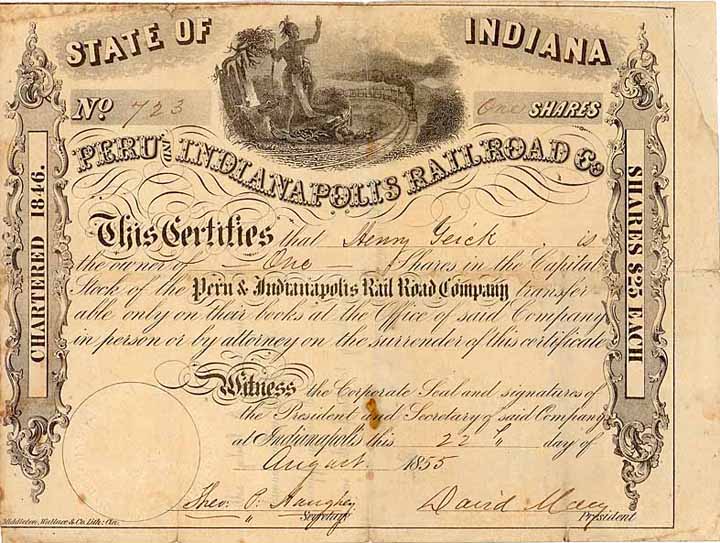 STATE OF INDIANA
No 723 One SHARES
PERU AND INDIANAPOLIS RAILROAD Co
CHARTERED 1846.
SHARES $25 EACH
This Certifies that Henry Geick is
the owner of One Shares in the Capital
Stock of the Peru & Indianapolis Rail Road Company transfer
able only on their books at the Office of said Company
in person or by attorney on the surrender of this certificate
Witness the Corporate Seal and signatures of
the President and Secretary of said Company
at Indianapolis this 22 d day of
August 1855
Theo. P. Haughey David Macy
Secretary President
Middleton, Wallace & Co. Lith: Cin.